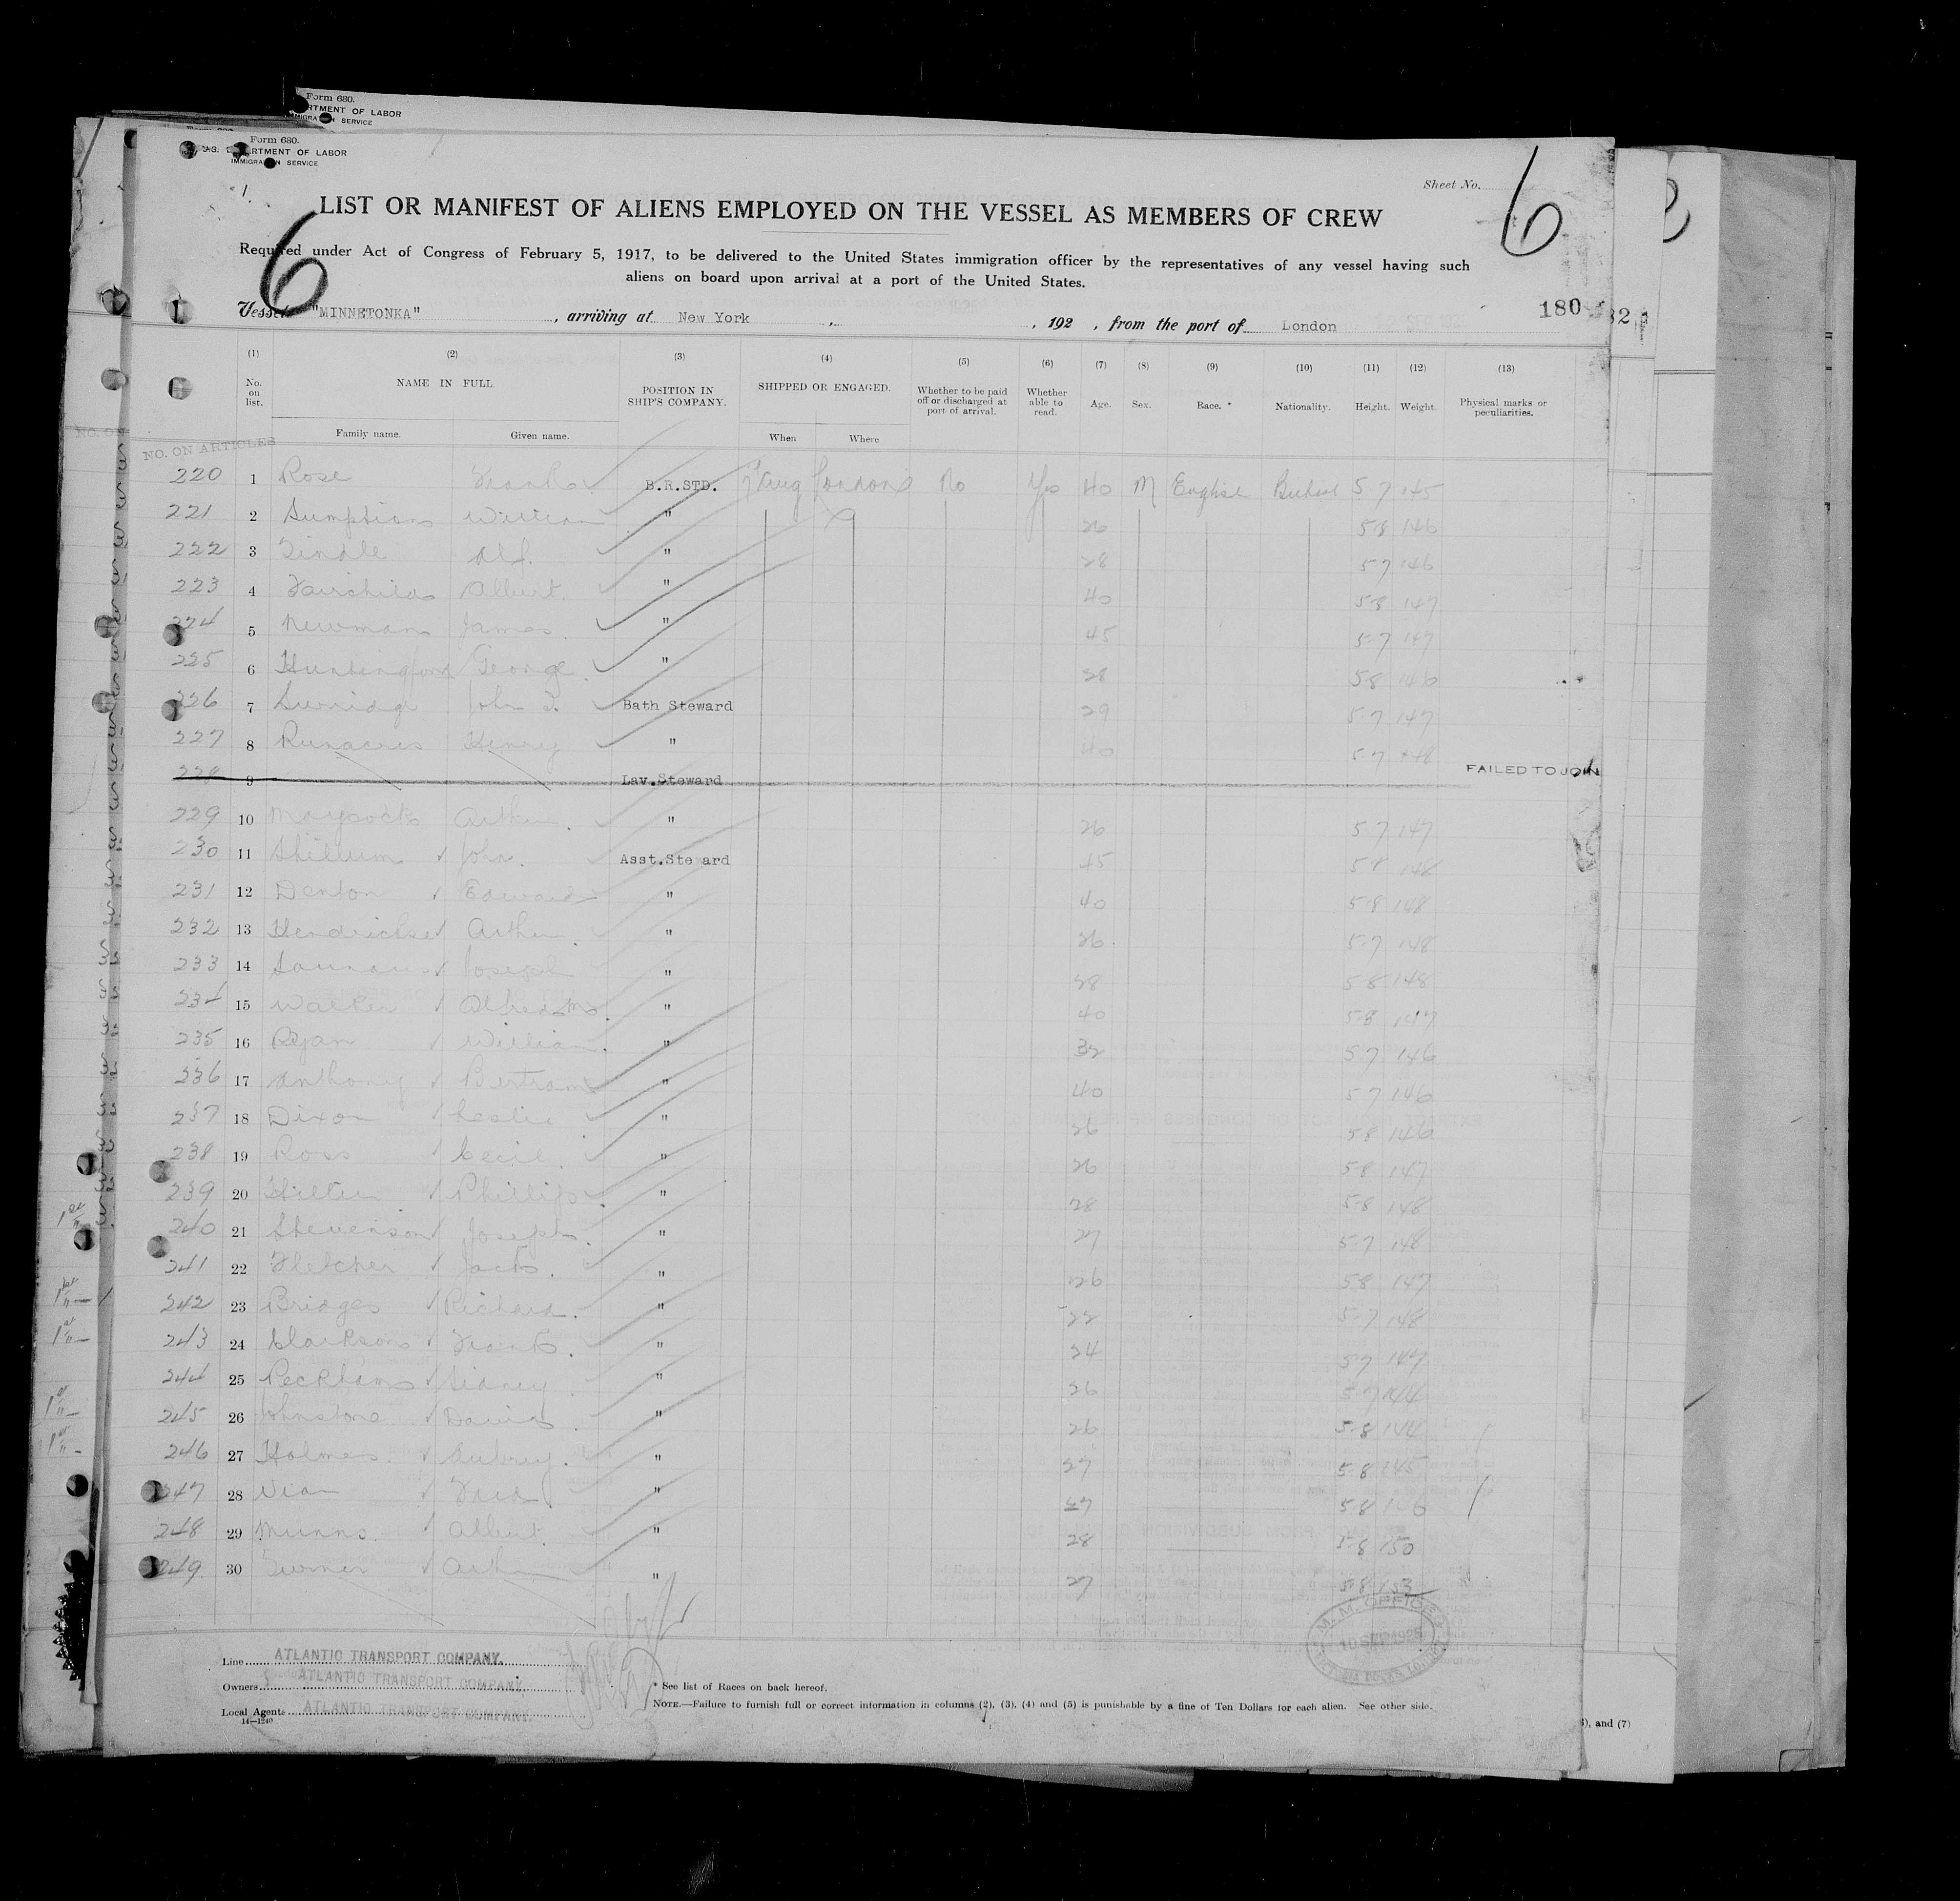 Form 680.
RTMENT OF LABOR
SERVICE
Form 680.
U.S. DEPARTMENT OF LABOR
IMMIGRATION SERVICE
Sheet No.
6
6
LIST OR MANIFEST OF ALIENS EMPLOYED ON THE VESSEL AS MEMBERS OF CREW
Required under Act of Congress of February 5, 1917, to be delivered to the United States immigration officer by the representatives of any vessel having such
aliens on board upon arrival at a port of the United States.
Vessel "MINNETONKA", arriving at New York, 192 , from the port of London
180
(1) (2) (3) (4) (5) (6) (7) (8) (9) (10) (11) (12) (13)
No. on list. NAME IN FULL POSITION IN SHIP'S COMPANY. SHIPPED OR ENGAGED. Whether to be paid off or discharged at port of arrival. Whether able to read. Age. Sex. Race. * Nationality. Height. Weight. Physical marks or peculiarities.
Family name. Given name. When Where
NO. ON ARTICLES
220 1 Rose Frank B.R.STD. Aug London No Yes 40 M English British 5 7 145
221 2 Sumption William " 26 5 8 146
222 3 Tindle Alf. " 28 5 7 146
223 4 Fairchilds Albert. " 40 5 8 147
224 5 Newman James. " 45 5 7 147
225 6 Huntingford George. " 28 5 8 146
226 7 Surridge John Bath Steward 29 5 7 147
227 8 Runacres Henry " 40 5 7 148
228 9 Lav.Steward FAILED TO JOIN
229 10 Maycock Arthur. " 26 5 7 147
230 11 Skillum John. Asst.Ste ard 45 5 8 148
231 12 Denton Edward " 40 5 8 148
232 13 Arthur. " 26 5 7 148
233 14 Joseph " 28 5 8 148
234 15 Walker Alfred " 40 5 8 147
235 16 Ryan William. " 32 5 7 146
236 17 Anthony Bertram " 40 5 7 146
237 18 Dixon Leslie " 26 5 8 146
238 19 Ross Cecil. " 26 5 8 147
239 20 Phillip. " 28 5 8 148
240 21 Stevenson Joseph. " 27 5 7 148
241 22 Fletcher Jack. " 26 5 8 147
242 23 Bridges Richard. " 22 5 7 148
243 24 Clarkson Frank. " 24 5 7 147
244 25 Peckham Sidney. " 26 5 7 144
245 26 Johnstone David. " 26 5 8 144
246 27 Holmes. Aubrey. " 27 5 8 145
247 28 Fred " 27 5 8
248 29 Munns. Albert " 28 5 8 150
249. 30 Turner Arthur " 27 5 8 153
M.M. OFFICE
10 SEP 1925
Line ATLANTIC TRANSPORT COMPANY.
Owners ATLANTIC TRANSPORT COMPANY.
Local Agents ATLANTIC TRANSPORT COMPANY.
14—1240
* See list of Races on back hereof.
NOTE.—Failure to furnish full or correct information in columns (2), (3), (4) and (5) is punishable by a fine of Ten Dollars for each alien. See other side.
), and (7)